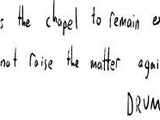 the chapel to remain
not raise the matter
DRUM